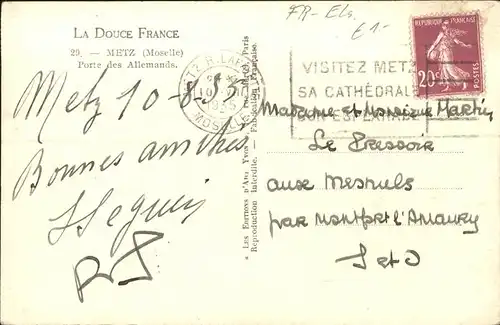 LA DOUCE FRANCE
29. — METZ (Moselle)
Porte des Allemands.
FR-Els.
£1-
REPUBLIQUE FRANÇAISE
20c
VISITEZ METZ
SA CATHÉDRALE
MOSELLE
Metz 10-8-35
Bonnes amitiés
Madame et Monsieur Martin
Le Pressoir
aux Mesnuls
par Montfort l'Amaury
S et O
* LES EDITIONS D'ART YVON — Paris
Reproduction interdite. — Fabrication Française.